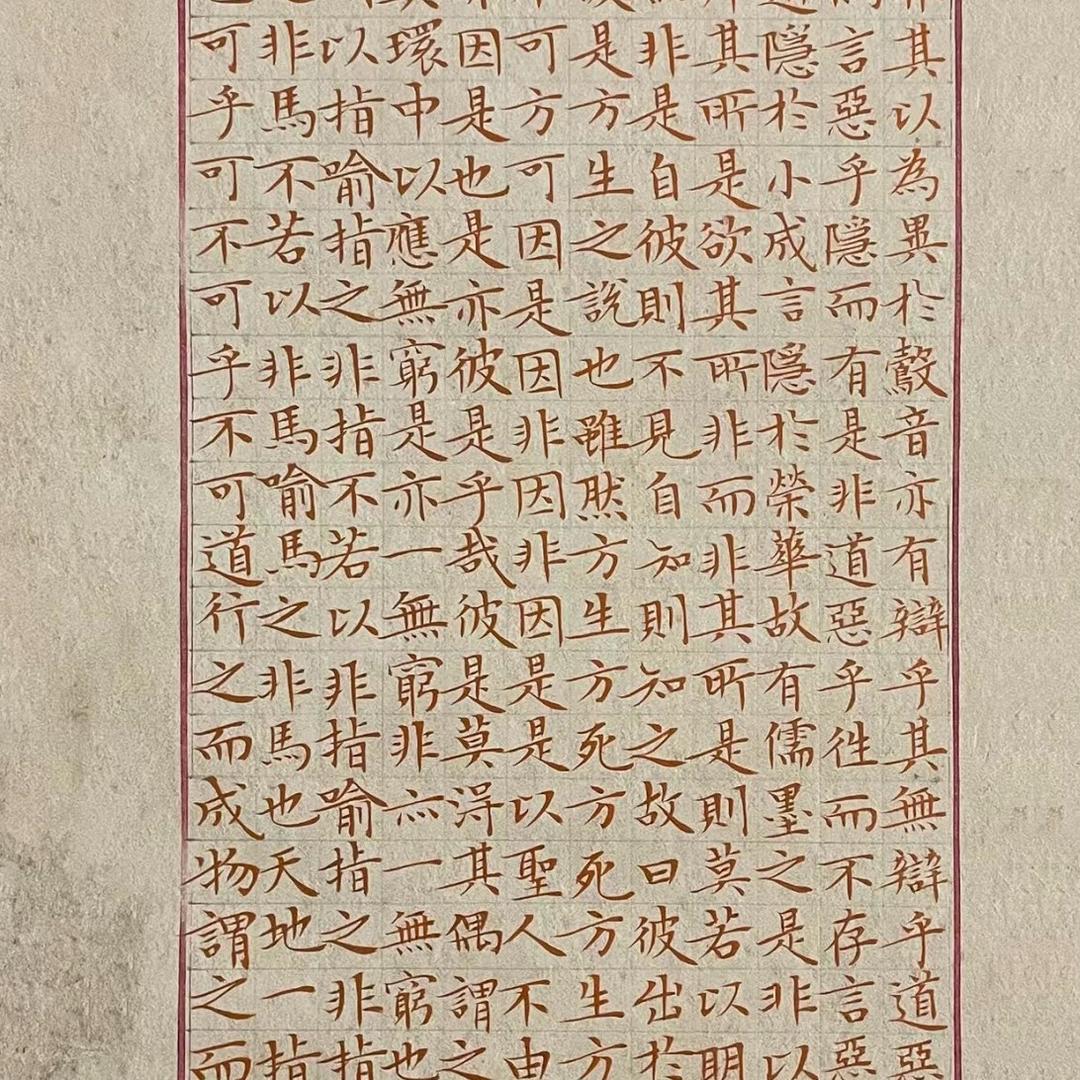 其以為異於鷇音亦有辯乎其無辯乎道惡
言惡乎隱而有是非道惡乎往而不存言惡
隱於小成言隱於榮華故有儒墨之是非以
其所是欲其所非而非其所是則莫若以明
非是自彼則不見自知則知之故曰彼出於
是方生之說也雖然方生方死方死方生方
可方可因是因非因非因是是以聖人不由
因是也是亦彼是乎哉彼是莫得其偶謂之
環中以應無窮是亦一無窮非亦一無窮也
以指喻指之非指不若以非指喻指之非指
非馬不若以非馬喻馬之非馬也天地一指
可乎可不可乎不可道行之而成物謂之而